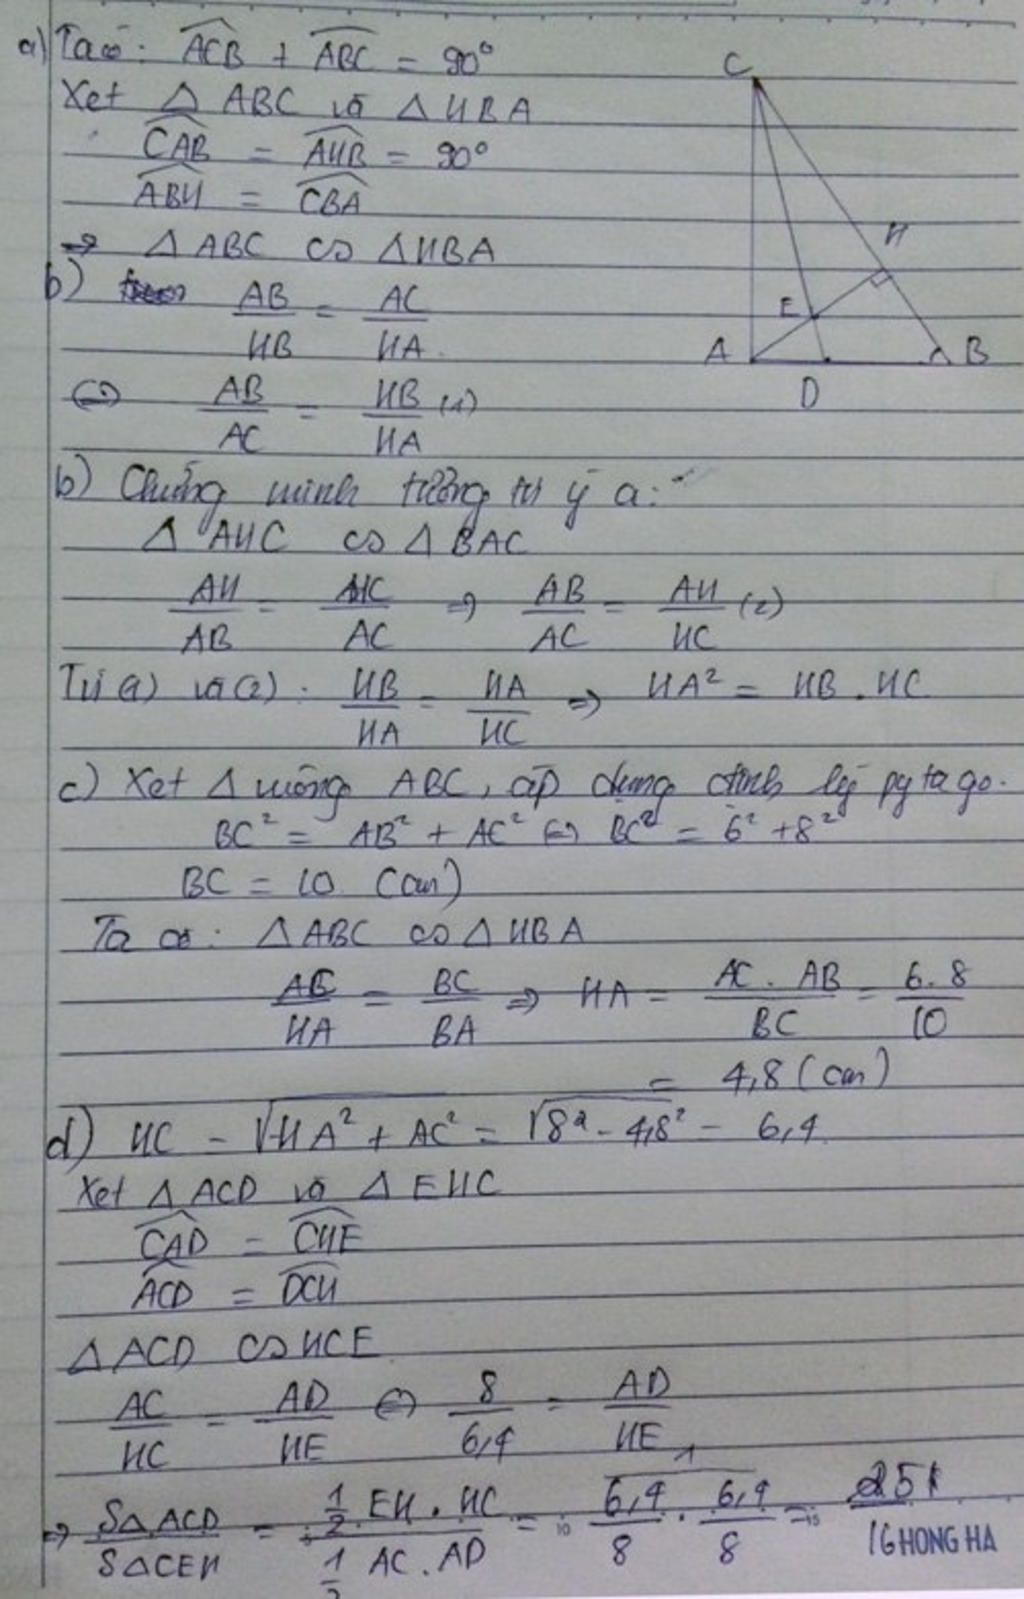 a) Ta có: ACB + ABC = 90°
Xet △ ABC và △ HBA
CAB = AHB = 90°
ABH = CBA
=> △ ABC ∽ △ HBA
b) AB/HB = AC/HA
<=> AB/AC = HB/HA (1)
b) Chứng minh tương tự ý a:
△ AHC ∽ △ BAC
AH/AB = HC/AC => AB/AC = AH/HC (2)
Từ (1) và (2): HB/HA = HA/HC => HA² = HB . HC
c) Xet △ vuông ABC, áp dụng định lý pytago.
BC² = AB² + AC² <=> BC² = 6² + 8²
BC = 10 (cm)
Ta có: △ ABC ∽ △ HBA
AC/HA = BC/BA => HA = AC . AB/BC = 6.8/10
= 4,8 (cm)
d) HC = √HA² + AC² = √8² - 4,8² = 6,4
Xet △ ACD và △ EHC
CAD = CHE
ACD = DCH
△ ACD ∽ HCE
AC/HC = AD/HE <=> 8/6,4 = AD/HE
=> S△ACD/S△CEH = 1/2 EH . HC / 1/2 AC . AD = 6,4/8 . 6,4/8 = 25/16
HONG HA
C
H
E
A
B
D
10
15